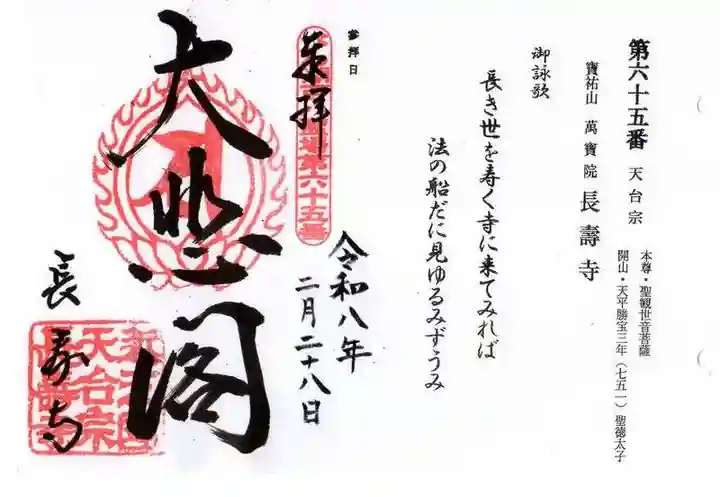 第六十五番 天台宗
本尊・聖観世音菩薩
開山・天平勝宝三年（七五一）聖徳太子
寶祐山 萬寶院 長壽寺
御詠歌
長き世を寿く寺に来てみれば
法の船だに見ゆるみずうみ
参拝日
奉拝
第六十五番
令和八年
二月二十八日
大悲閣
長寿寺
天台宗